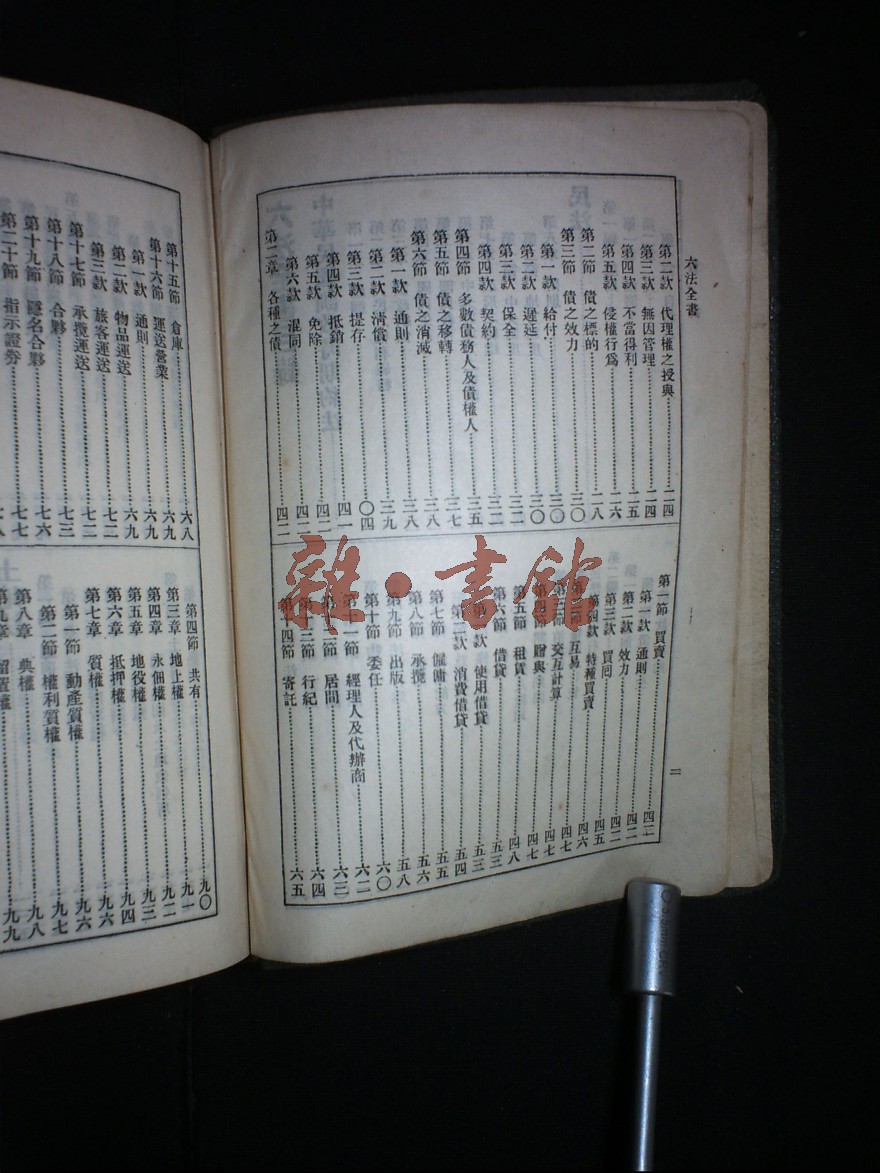 六法全書
第二款 代理權之授與 二四
第三款 無因管理 二四
第四款 不當得利 二五
第五款 侵權行爲 二六
第二節 債之標的 二八
第三節 債之效力 三〇
第一款 給付 三〇
第二款 遲延 三〇
第三款 保全 三二
第四款 契約 三二
第四節 多數債務人及債權人 三五
第五節 債之移轉 三七
第六節 債之消滅 三八
第一款 通則 三八
第二款 清償 三九
第三款 提存 〇四
第四款 抵銷 四一
第五款 免除 四二
第六款 混同 四二
第二章 各種之債 四二
第一節 買賣 四二
第一款 通則 四二
第二款 效力 四二
第三款 買回 四五
第四款 特種買賣 四六
第二節 互易 四七
第三節 交互計算 四七
第四節 贈與 四七
第五節 租賃 四八
第六節 借貸 五三
第一款 使用借貸 五三
第二款 消費借貸 五四
第七節 僱傭 五五
第八節 承攬 五六
第九節 出版 五八
第十節 委任 六〇
第十一節 經理人及代辦商 六二
第十二節 居間 六三
第十三節 行紀 六四
第十四節 寄託 六五
二
第十五節 倉庫 六八
第十六節 運送營業 六九
第一款 通則 六九
第二款 物品運送 六九
第三款 旅客運送 七二
第十七節 承攬運送 七二
第十八節 合夥 七三
第十九節 隱名合夥 七六
第二十節 指示證券 七七
七八
第四節 共有 九〇
第三章 地上權 九一
第四章 永佃權 九二
第五章 地役權 九三
第六章 抵押權 九四
第七章 質權 九六
第一節 動產質權 九六
第二節 權利質權 九七
第八章 典權 九八
第九章 留置權 九九
雜·書館